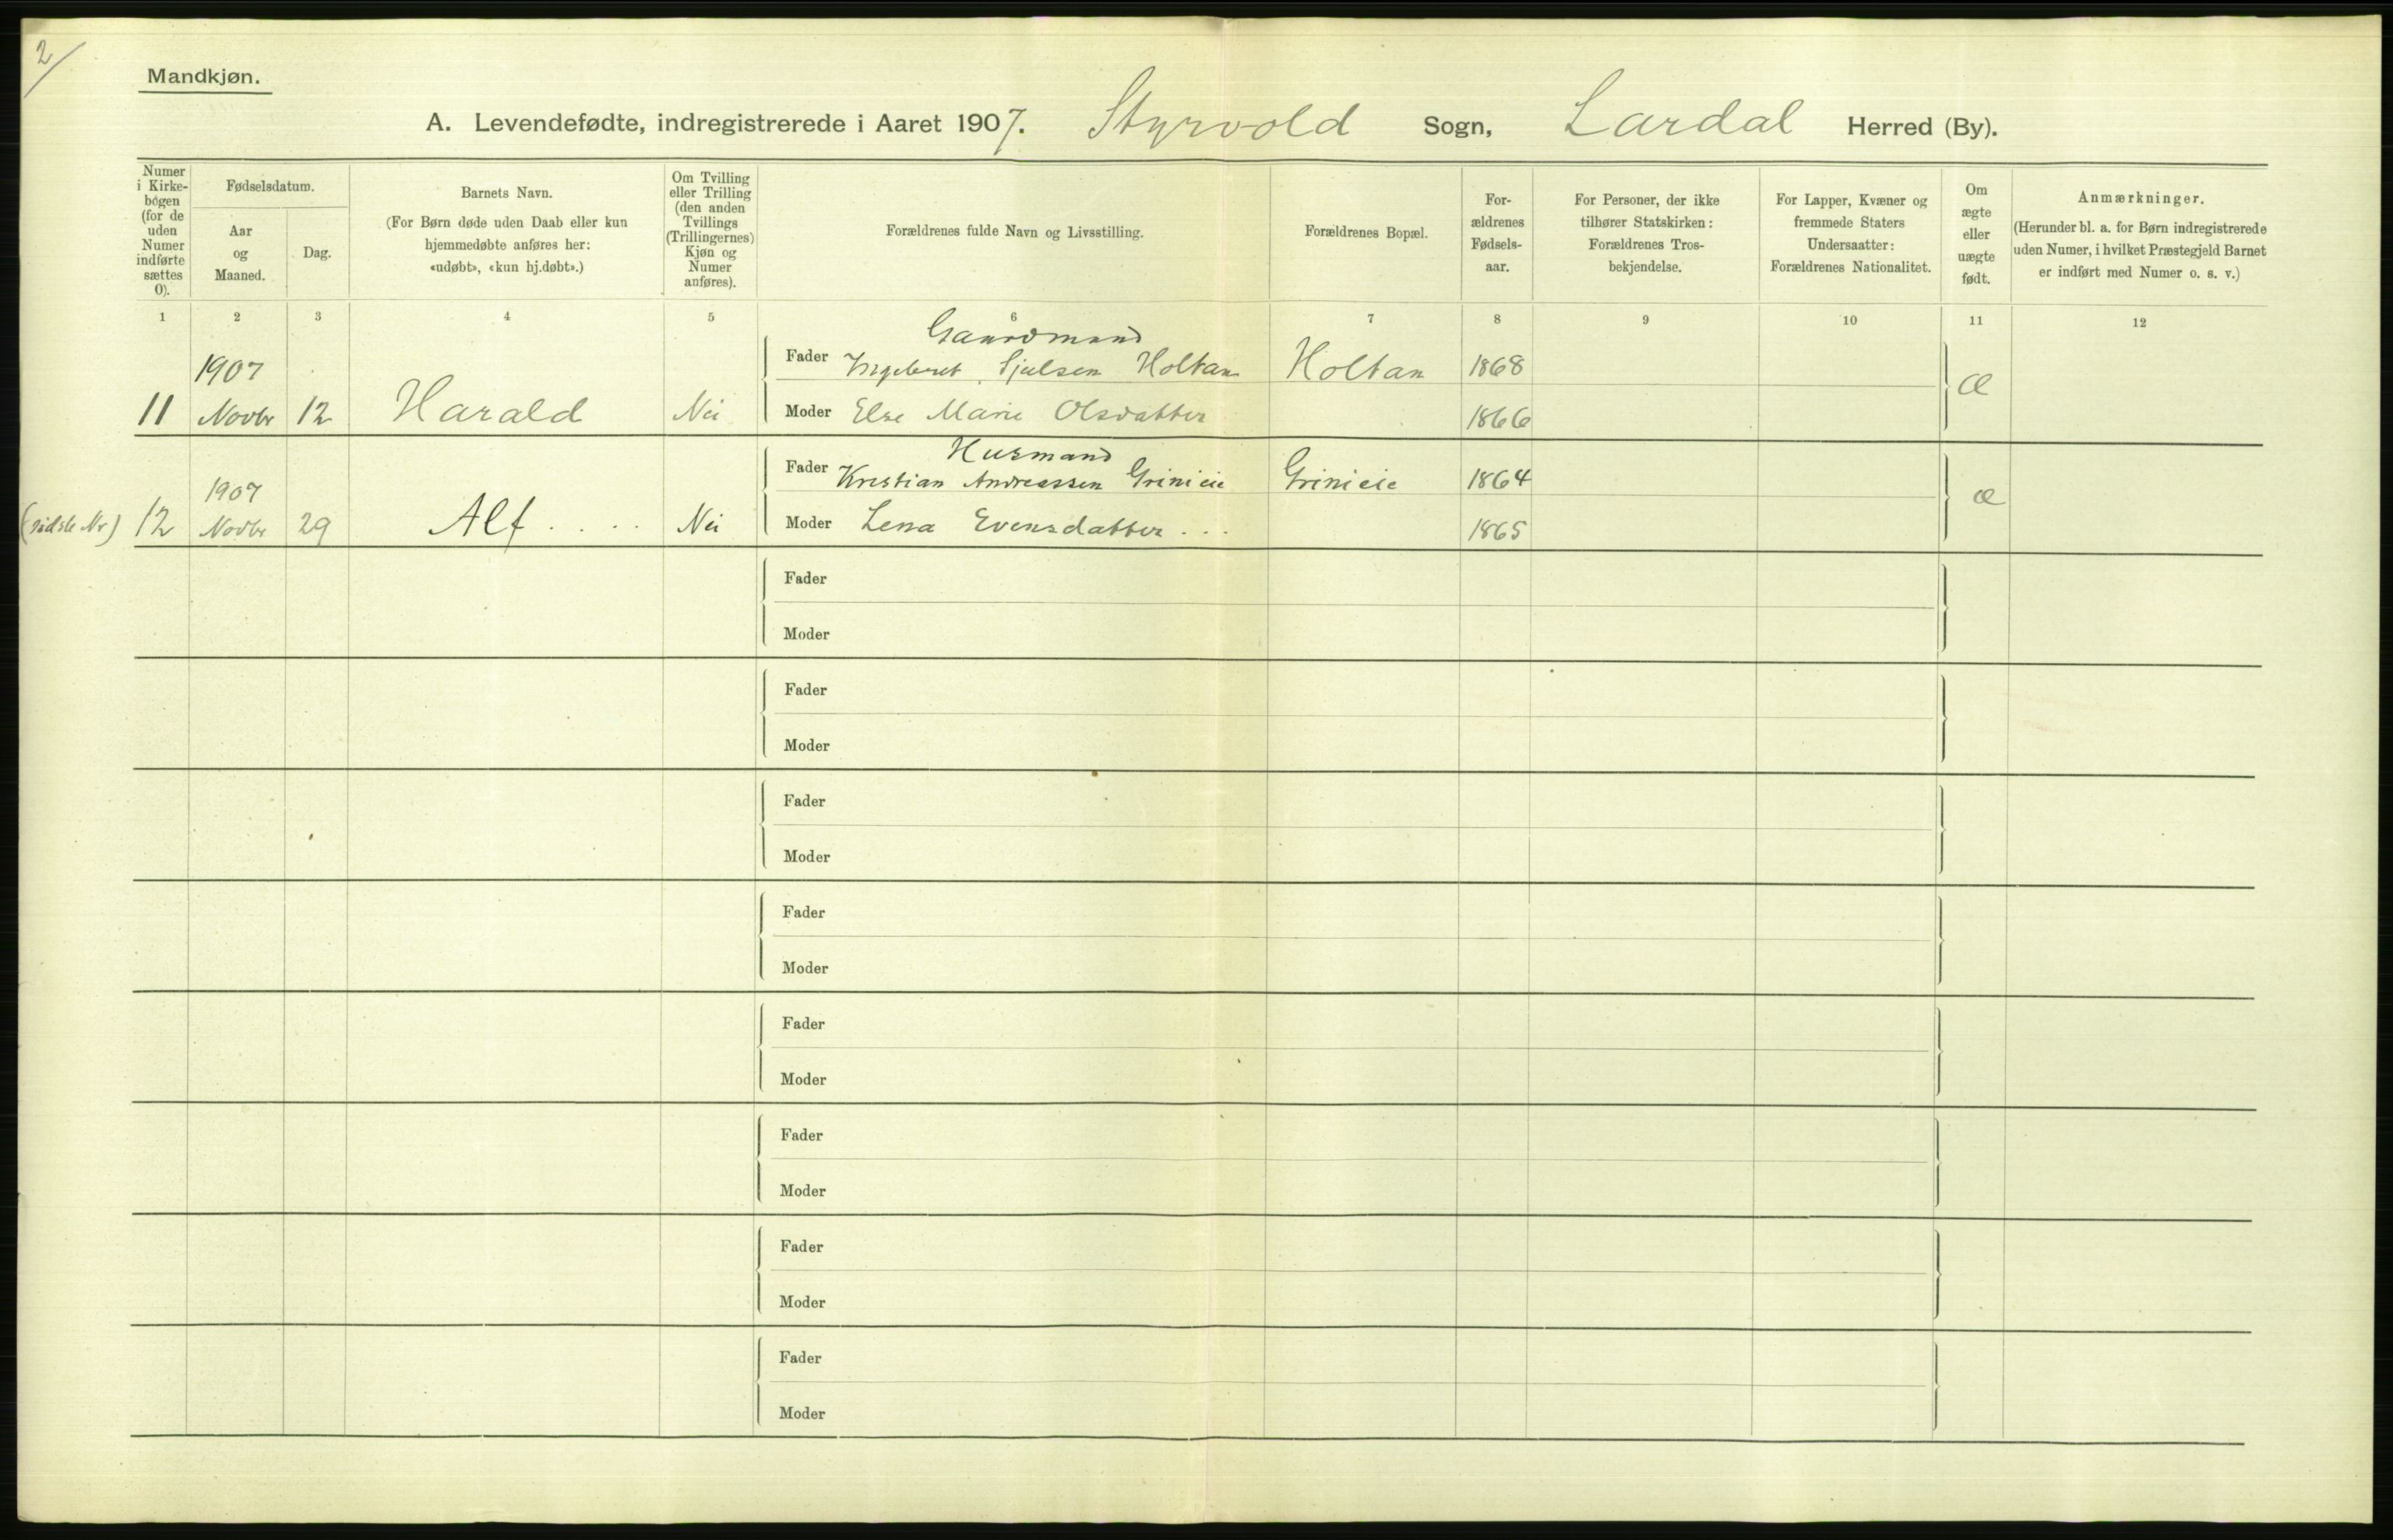 2/
Mandkjøn.
A. Levendefødte, indregistrerede i Aaret 1907. Styrvold Sogn, Lardal Herred (By).
Numer i Kirkebogen (for de uden Numer indførte sættes 0).
Fødselsdatum.
Aar og Maaned.
Dag.
Barnets Navn.
(For Børn døde uden Daab eller kun
hjemmedøbte anføres her:
«udøbt», «kun hj.døbt».)
Om Tvilling
eller Trilling
(den anden
Tvillings
(Trillingernes)
Kjøn og
Numer
anføres).
Forældrenes fulde Navn og Livsstilling.
Forældrenes Bopæl.
For-
ældrenes
Fødsels-
aar.
For Personer, der ikke
tilhører Statskirken:
Forældrenes Tros-
bekjendelse.
For Lapper, Kvæner og
fremmede Staters
Undersaatter:
Forældrenes Nationalitet.
Om
ægte
eller
uægte
født.
Anmærkninger.
(Herunder bl. a. for Børn indregistrerede
uden Numer, i hvilket Præstegjeld Barnet
er indført med Numer o. s. v.)
1 2 3 4 5 6 7 8 9 10 11 12
Gaardmand
1907 Fader Ingebret Holtan Holtan 1868 æ
11 Novbr 12 Harald Nei Moder Else Marie Olsdatter 1866
Husmand
1907 Fader Kristian Andreassen Grinieie Grinieie 1864 æ
(sidste Nr) 12 Novbr 29 Alf . . . . Nei Moder Lena Evensdatter . . . 1865
Fader
Moder
Fader
Moder
Fader
Moder
Fader
Moder
Fader
Moder
Fader
Moder
Fader
Moder
Fader
Moder